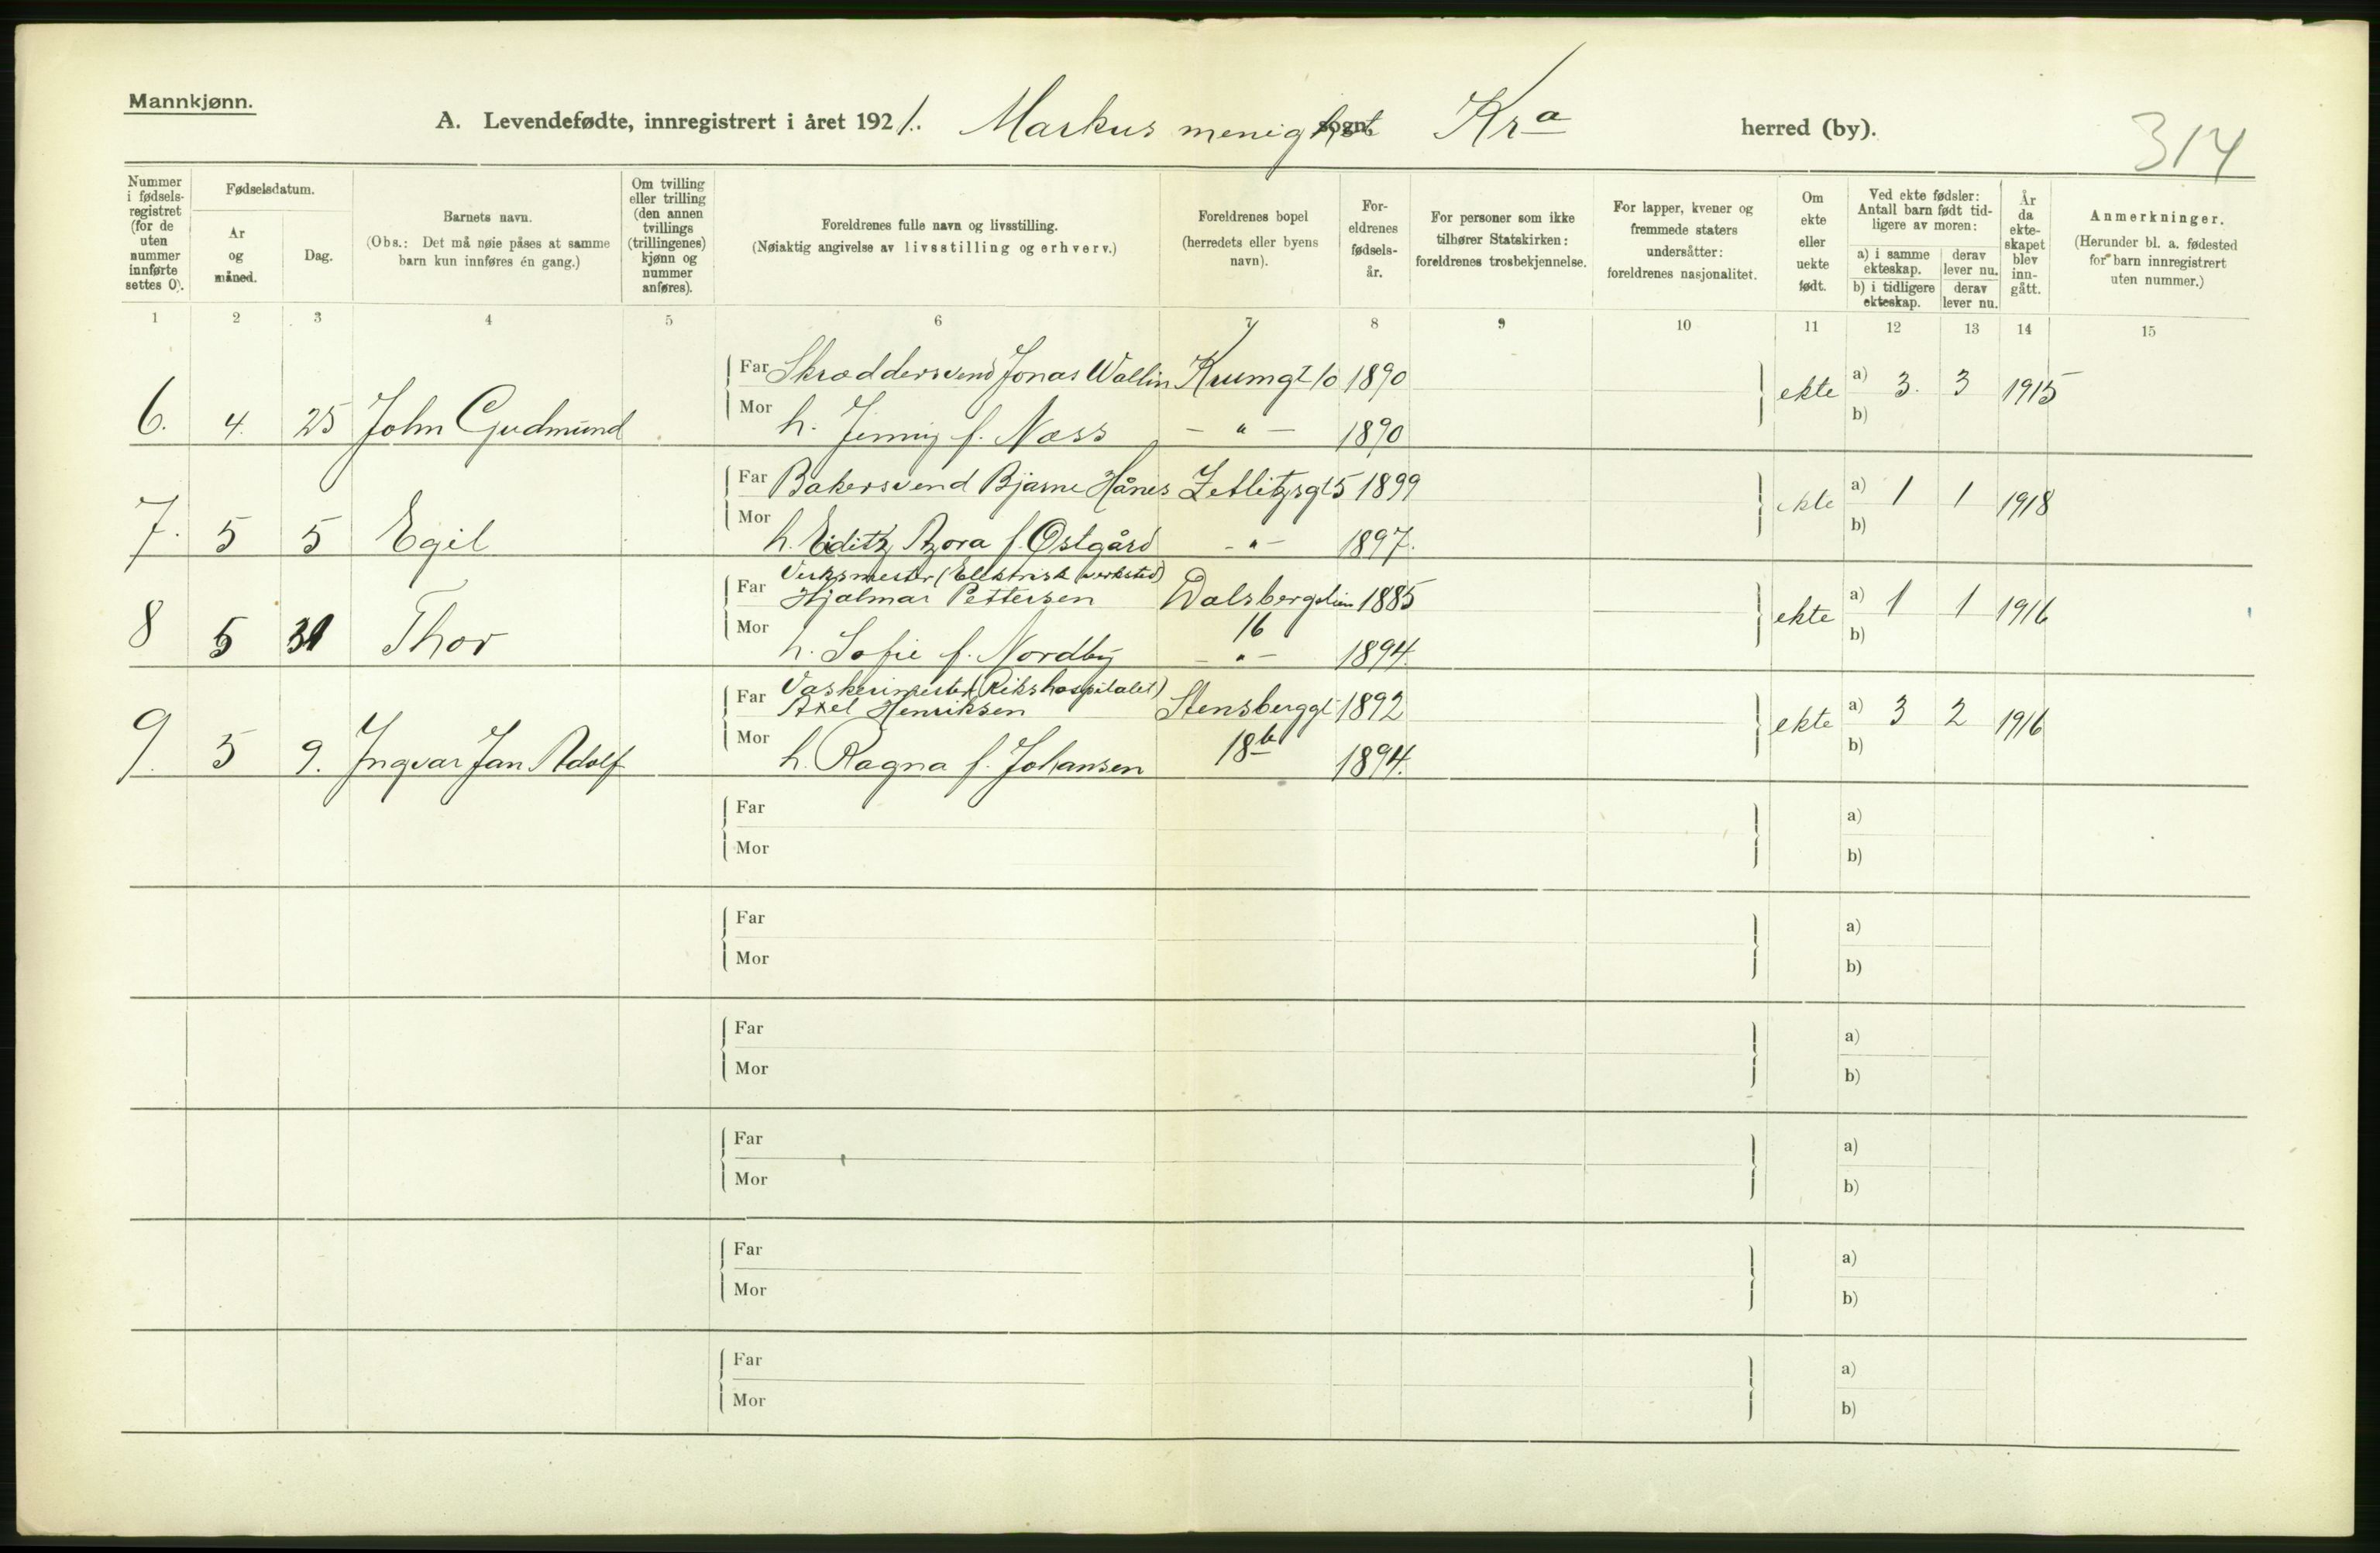 Mannkjønn.
A. Levendefødte, innregistrert i året 1921. Markus menighet sogn Kra herred (by).
314
Nummer i fødselsregistret (for de uten nummer innførte settes 0).
Fødselsdatum.
År og måned.
Dag.
Barnets navn.
(Obs.: Det må nøie påses at samme barn kun innføres én gang.)
Om tvilling eller trilling (den annen tvillings (trillingenes) kjønn og nummer anføres).
Foreldrenes fulle navn og livsstilling.
(Nøiaktig angivelse av livsstilling og erhverv.)
Foreldrenes bopel (herredets eller byens navn).
Foreldrenes fødselsår.
For personer som ikke tilhører Statskirken: foreldrenes trosbekjennelse.
For lapper, kvener og fremmede staters undersåtter: foreldrenes nasjonalitet.
Om ekte eller uekte født.
Ved ekte fødsler: Antall barn født tidligere av moren:
a) i samme ekteskap. derav lever nu.
b) i tidligere ekteskap. derav lever nu.
År da ekteskapet blev inngått.
Anmerkninger.
(Herunder bl. a. fødested for barn innregistrert uten nummer.)
1 2 3 4 5 6 7 8 9 10 11 12 13 14 15
Far Skræddersvend Jonas Wallin Krumgt 10 1890
6. 4. 25 John Gudmund ekte a) 3. 3 1915
Mor h. Jenny f. Næss - " - 1890 b)
Far Bakersvend Bjarne Hånes Zetlitzsgt 5 1899
7. 5 5 Egil ekte a) 1 1 1918
Mor h. Edith Thora f. Østgård - " - 1897. b)
Verksmester (Elektrisk verksted)
Far Hjalmar Pettersen Dalsbergstien 1885
8 5 31 Thor 16 ekte a) 1 1 1916
Mor h. Sofie f. Nordby - " - 1894. b)
Vaskerimester (Rikshospitalet)
Far Axel Henriksen Stensberggt 1892
9. 5 9. Ingvar Jan Adolf ekte a) 3 2 1916
Mor h. Ragna f. Johansen 18b 1894. b)
Far a)
Mor b)
Far a)
Mor b)
Far a)
Mor b)
Far a)
Mor b)
Far a)
Mor b)
Far a)
Mor b)